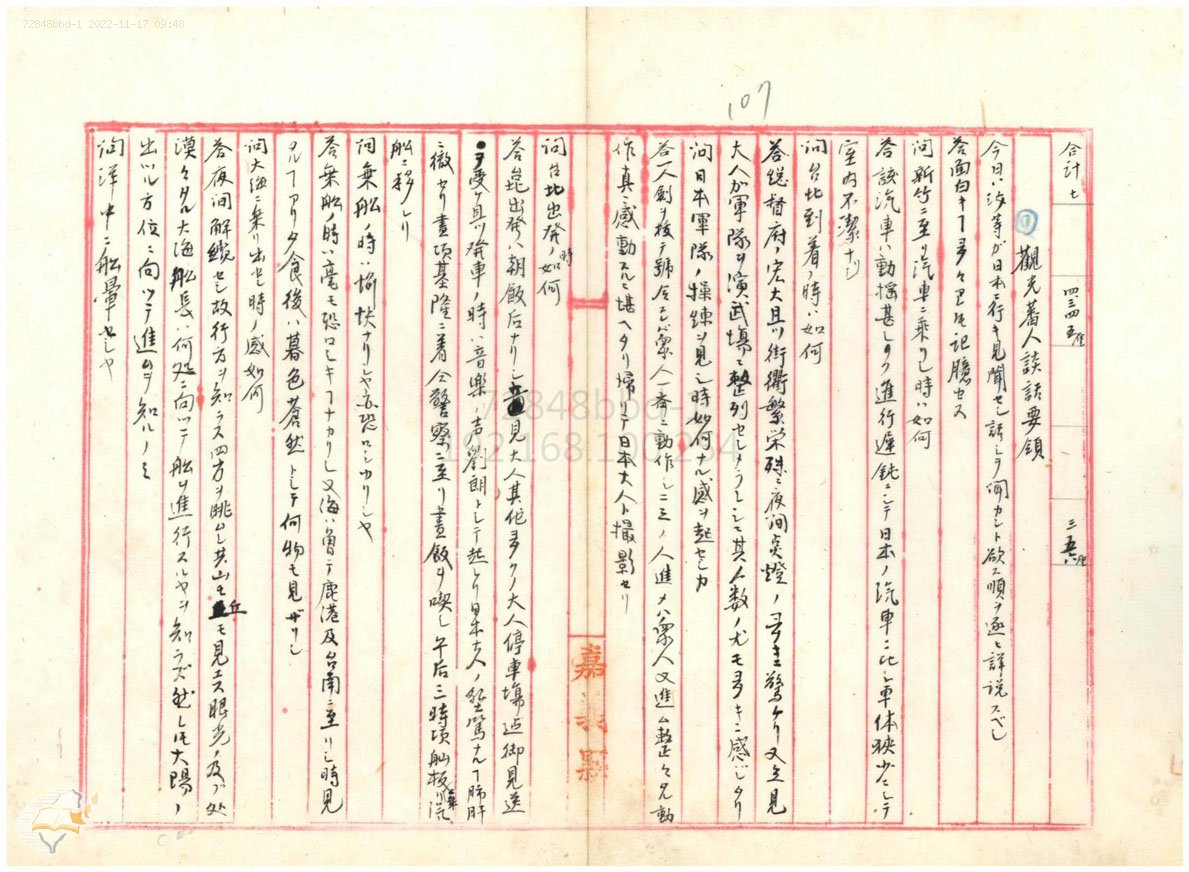 72848bbd-1 2022-11-17 09:48
107
合計七 四三四五厘 三五八厘
観光蕃人談話要領
今日ハ汝等ガ日本ニ行キ見聞セシ話シヲ聞カント欲ス順ヲ逐ヒ詳説スベシ
答面白キヿ多々アレ圧記臆セス
問新竹ニ至リ汽車ニ乗リシ時ハ如何
答該汽車ハ動揺甚シク進行遅鈍ニシテ日本ノ汽車ニ比シ車体狭少ニシテ
室内不潔ナリ
問台北到着ノ時ハ如何
答総督府ノ宏大且ツ街衢繁栄殊ニ夜間点燈ノ多キニ驚ケリ又立見
大人ガ軍隊ヲ演武場ニ整列セシメラレシニ其人数ノ尤モ多キニ感ジタリ
問日本軍隊ノ操練ヲ見シ時如何ナル感ヲ起セシカ
答一人剣ヲ抜テ号令スレバ衆人一斉ニ動作シ二三ノ人進メハ衆人又進ム整々タル動
作真ニ感動スルニ堪ヘタリ帰リテ日本大人ト撮影セリ
問台北出発ノ時如何
答昆出発ハ朝飯后ナリシ立見大人其他多クノ大人停車場迄御見送
ヲ受ケ且ツ発車ノ時ハ音楽ノ声劉朗トシテ起レリ日本大人ノ懇篤ナルヿ肺肝
ニ徹セリ昼頃基隆ニ着仝警察ニ至リ昼飯ヲ喫シ午后三時頃舢板ニ乗リ汽
船ニ移レリ
問乗船ノ時ハ愉快ナリシヤ亦恐ロシカリシヤ
答乗船ノ時ハ毫モ恐ロシキヿナカリシ又海ハ曽テ鹿港及台南ニ至リシ時見
タルヿアリ夕食後ハ暮色蒼然トシテ何物モ見ザリシ
問大海ニ乗リ出セシ時ノ感如何
答夜間解纜セシ故行方ヲ知ラス四方ヲ眺ムレ共山モ丘モ見エス眼光ノ及ブ処
漠々タル大海船長ハ何処ニ向ツテ船ヲ進行スルヤヲ知ラズ然レ圧大陽ノ
出ツル方位ニ向ツテ進ムヲ知ルノミ
問洋中ニ船暈セシヤ
嘉義県
72848bbd-1
192.168.100.234